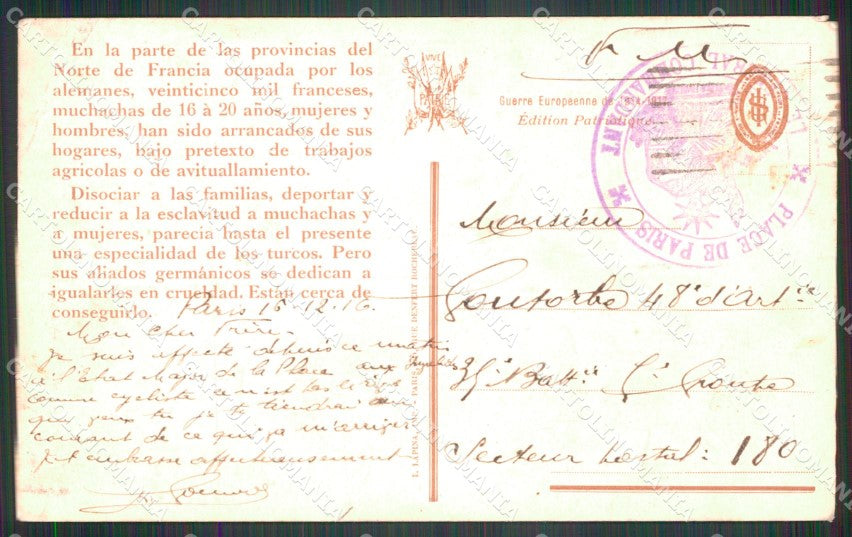 En la parte de las provincias del
Norte de Francia ocupada por los
alemanes, veinticinco mil franceses,
muchachas de 16 à 20 años, mujeres y
hombres, han sido arrancados de sus
hogares, bajo pretexto de trabajos
agricolas o de avituallamiento.
Disociar a las familias, deportar y
reducir a la esclavitud a muchachas y
a mujeres, parecia hasta el presente
una especialidad de los turcos. Pero
sus aliados germánicos se dedican a
igualarlos en crueldad. Están cerca de
conseguirlo.
Paris 15-12-16
Mon cher
je suis affecté depuis ce matin
à l'Etat Major de la Place aux
comme cycliste
que veux tu je te tiendrai au
courant de ce qui va m'arriver
Je t'embrasse affectueusement
VIVE
Guerre Européenne de 1914-1916
Édition Patriotique
F M
PLACE DE PARIS
Monsieur
48e d'Artie
Battie
Secteur Postal: 180
L. LAPINA, PARIS
CARTOLINOMANIA